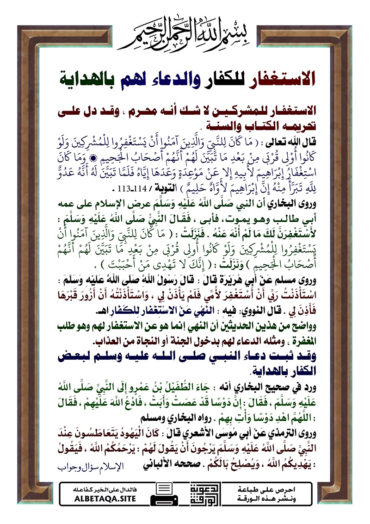 بسم الله الرحمن الرحيم
الاستغفار للكفار والدعاء لهم بالهداية
الاستغفار للمشركين لا شك أنه محرم ، وقد دل على
تحريمه الكتاب والسنة .
قال الله تعالى : ( مَا كَانَ لِلنَّبِيِّ وَالَّذِينَ آمَنُوا أَنْ يَسْتَغْفِرُوا لِلْمُشْرِكِينَ وَلَوْ
كَانُوا أُولِي قُرْبَى مِنْ بَعْدِ مَا تَبَيَّنَ لَهُمْ أَنَّهُمْ أَصْحَابُ الْجَحِيمِ * وَمَا كَانَ
اسْتِغْفَارُ إِبْرَاهِيمَ لِأَبِيهِ إِلا عَنْ مَوْعِدَةٍ وَعَدَهَا إِيَّاهُ فَلَمَّا تَبَيَّنَ لَهُ أَنَّهُ عَدُوٌّ
لِلَّهِ تَبَرَّأَ مِنْهُ إِنَّ إِبْرَاهِيمَ لَأَوَّاهٌ حَلِيمٌ ) التوبة / 113ـ114 .
وروى البخاري أن النبي صَلَّى اللهُ عَلَيْهِ وَسَلَّمَ عرض الإسلام على عمه
أبي طالب وهو يموت ، فأبى ، فَقَالَ النَّبِيُّ صَلَّى اللَّهُ عَلَيْهِ وَسَلَّمَ :
لَأَسْتَغْفِرَنَّ لَكَ مَا لَمْ أُنْهَ عَنْهُ . فَنَزَلَتْ : ( مَا كَانَ لِلنَّبِيِّ وَالَّذِينَ آمَنُوا أَنْ
يَسْتَغْفِرُوا لِلْمُشْرِكِينَ وَلَوْ كَانُوا أُولِي قُرْبَى مِنْ بَعْدِ مَا تَبَيَّنَ لَهُمْ أَنَّهُمْ
أَصْحَابُ الْجَحِيمِ ) وَنَزَلَتْ : ( إِنَّكَ لا تَهْدِي مَنْ أَحْبَبْتَ ) .
وروى مسلم عَنْ أَبِي هُرَيْرَةَ قَالَ : قَالَ رَسُولُ اللَّهِ صَلَّى اللَّهُ عَلَيْهِ وَسَلَّمَ :
اسْتَأْذَنْتُ رَبِّي أَنْ أَسْتَغْفِرَ لأُمِّي فَلَمْ يَأْذَنْ لِي ، وَاسْتَأْذَنْتُهُ أَنْ أَزُورَ قَبْرَهَا
فَأَذِنَ لِي . قال النووي: فيه : النَّهْي عَنْ الاسْتِغْفَار لِلْكُفَّارِ اهـ
وواضح من هذين الحديثين أن النهي إنما هو عن الاستغفار لهم وهو طلب
المغفرة ، ومثله الدعاء لهم بدخول الجنة أو النجاة من العذاب.
وقد ثبت دعاء النبي صلى الله عليه وسلم لبعض
الكفار بالهداية.
ورد في صحيح البخاري أنه : جَاءَ الطُّفَيْلُ بْنُ عَمْرٍو إِلَى النَّبِيِّ صَلَّى اللَّهُ
عَلَيْهِ وَسَلَّمَ ، فَقَالَ : إِنَّ دَوْسًا قَدْ عَصَتْ وَأَبَتْ ، فَادْعُ اللَّهَ عَلَيْهِمْ ، فَقَالَ
: اللَّهُمَّ اهْدِ دَوْسًا وَأْتِ بِهِمْ . رواه البخاري ومسلم
وروى الترمذي عَنْ أَبِي مُوسَى الأشعري قَالَ : كَانَ الْيَهُودُ يَتَعَاطَسُونَ عِنْدَ
النَّبِيِّ صَلَّى اللَّهُ عَلَيْهِ وَسَلَّمَ يَرْجُونَ أَنْ يَقُولَ لَهُمْ : يَرْحَمُكُمْ اللَّهُ ، فَيَقُولُ
: يَهْدِيكُمْ اللَّهُ ، وَيُصْلِحُ بَالَكُمْ . صححه الألباني
الإسلام سؤال وجواب
احرص على طباعة
ونشر هذه الورقة
الدعوية
الورقة
فالدال على الخير كفاعله
ALBETAQA.SITE